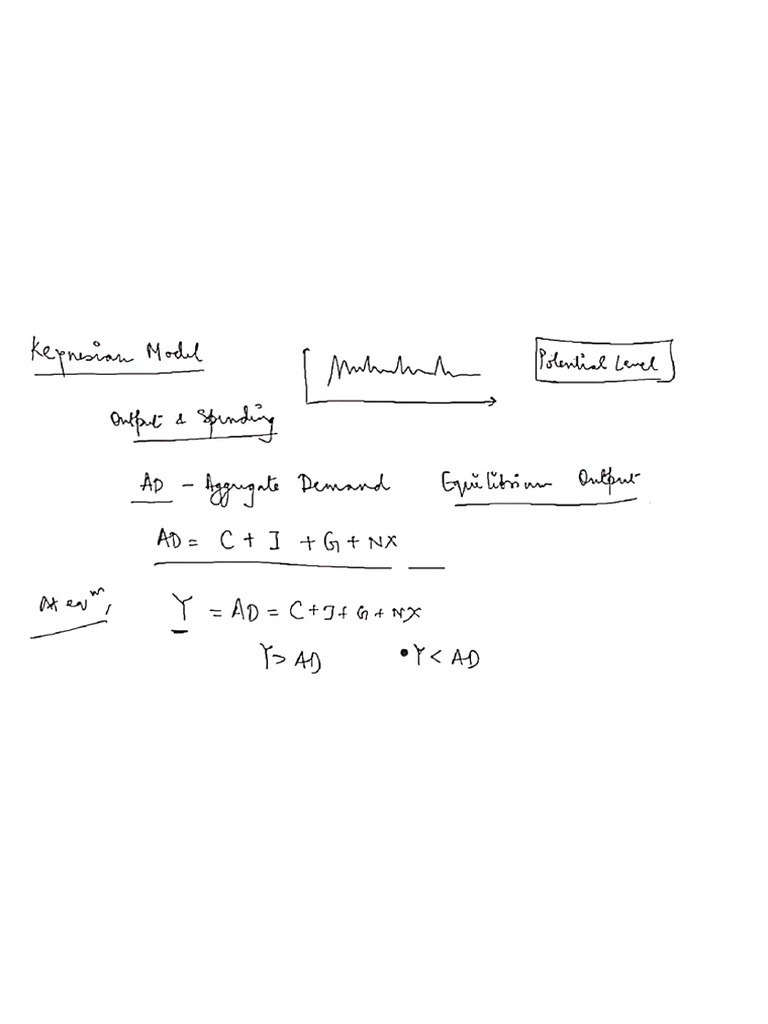 Keynesian Model
Potential Level
Output & Spending
AD - Aggregate Demand
Equilibrium Output
AD = C + I + G + NX
At eqᵐ,
Y = AD = C + I + G + NX
Y > AD
• Y < AD